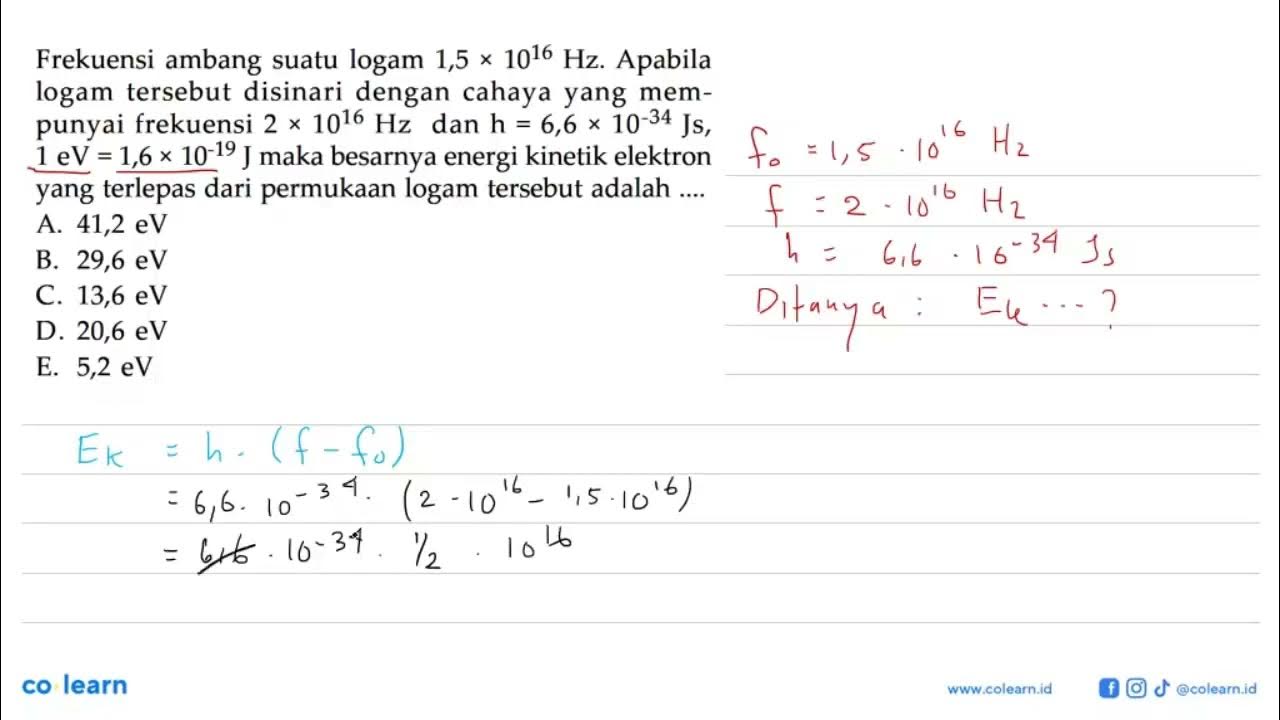 Frekuensi ambang suatu logam 1,5 × 10¹⁶ Hz. Apabila
logam tersebut disinari dengan cahaya yang mem-
punyai frekuensi 2 × 10¹⁶ Hz dan h = 6,6 × 10⁻³⁴ Js,
1 eV = 1,6 × 10⁻¹⁹ J maka besarnya energi kinetik elektron
yang terlepas dari permukaan logam tersebut adalah ....
A. 41,2 eV
B. 29,6 eV
C. 13,6 eV
D. 20,6 eV
E. 5,2 eV
f₀ = 1,5 · 10¹⁶ Hz
f = 2 · 10¹⁶ Hz
h = 6,6 · 10⁻³⁴ Js
Ditanya : Ek ... ?
Ek = h · (f - f₀)
= 6,6 · 10⁻³⁴ · (2 · 10¹⁶ - 1,5 · 10¹⁶)
= 6,6 · 10⁻³⁴ · 1/2 · 10¹⁶
co learn
www.colearn.id
@colearn.id